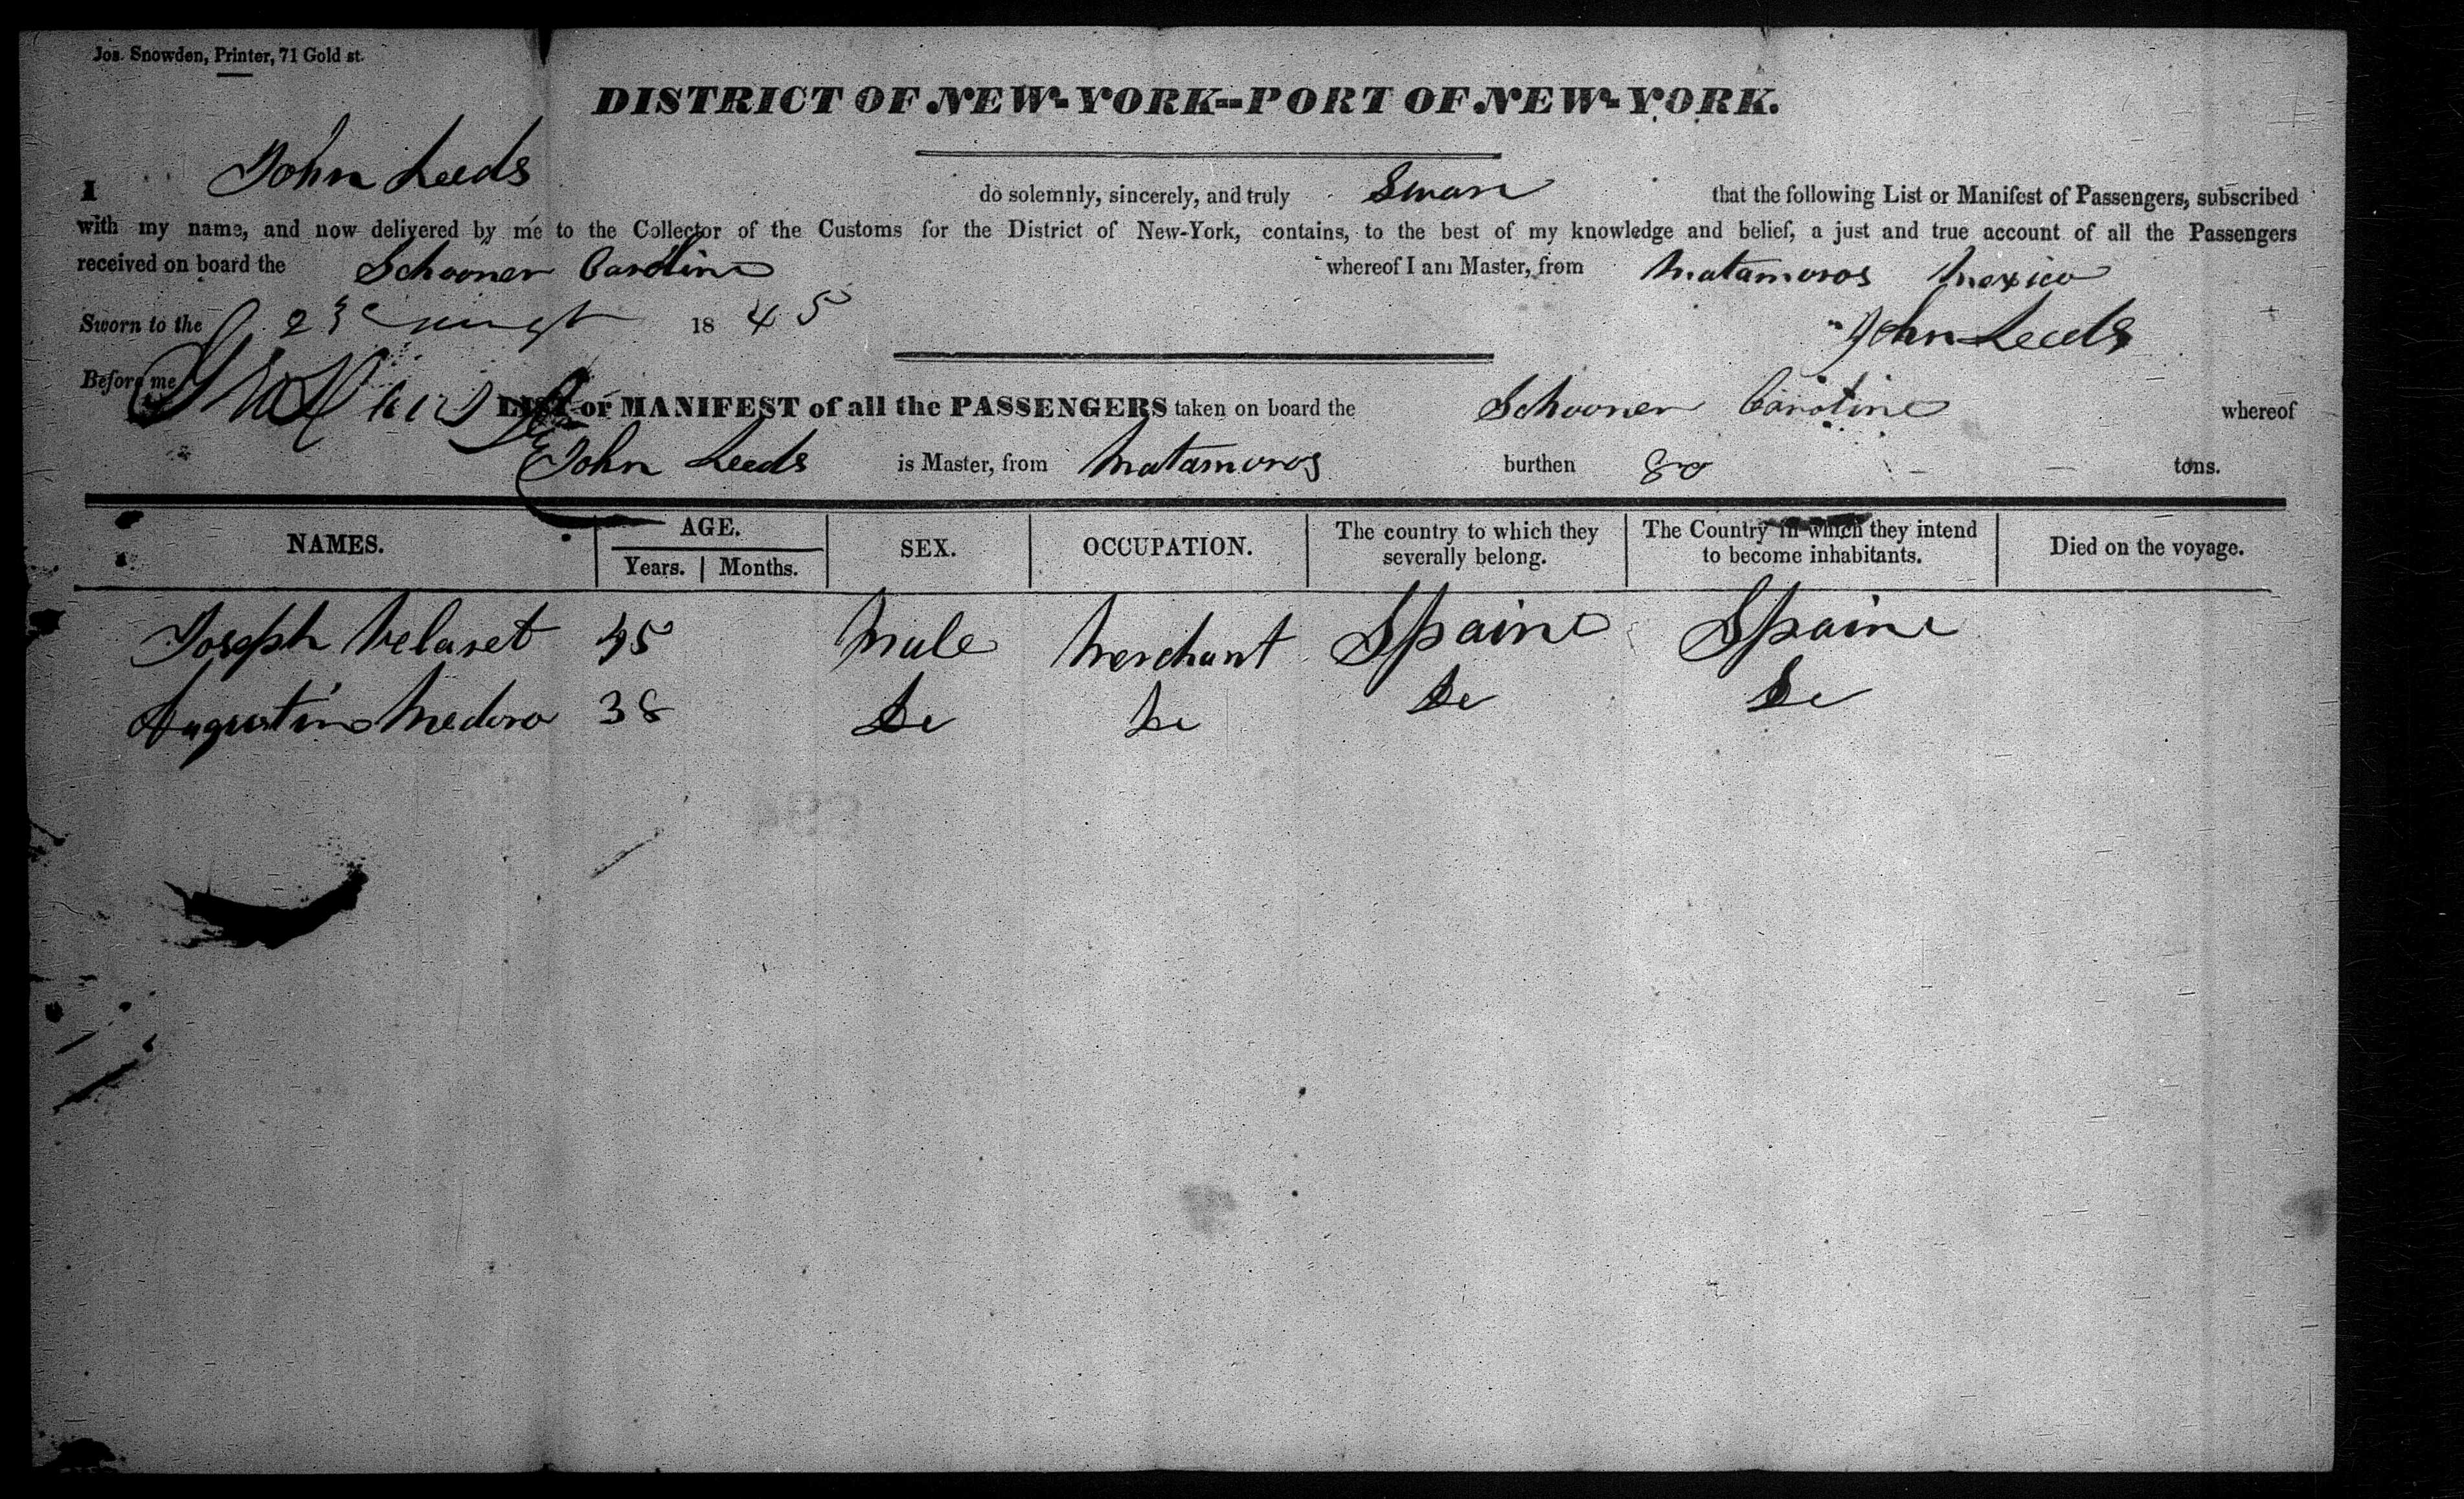 Jos. Snowden, Printer, 71 Gold st.
DISTRICT OF NEW-YORK--PORT OF NEW-YORK.
I John Leeds do solemnly, sincerely, and truly Swan that the following List or Manifest of Passengers, subscribed
with my name, and now delivered by me to the Collector of the Customs for the District of New-York, contains, to the best of my knowledge and belief, a just and true account of all the Passengers
received on board the Schooner Caroline whereof I am Master, from Matamoros Mexico
Sworn to the 23 1845 John Leeds
Before me
LIST or MANIFEST of all the PASSENGERS taken on board the Schooner Caroline whereof
John Leeds is Master, from Matamoros burthen 80 tons.
NAMES. AGE. Years. Months. SEX. OCCUPATION. The country to which they severally belong. The Country in which they intend to become inhabitants. Died on the voyage.
Joseph 45 Male Merchant Spaine Spaine
Augustine 38 Do Do Do Do